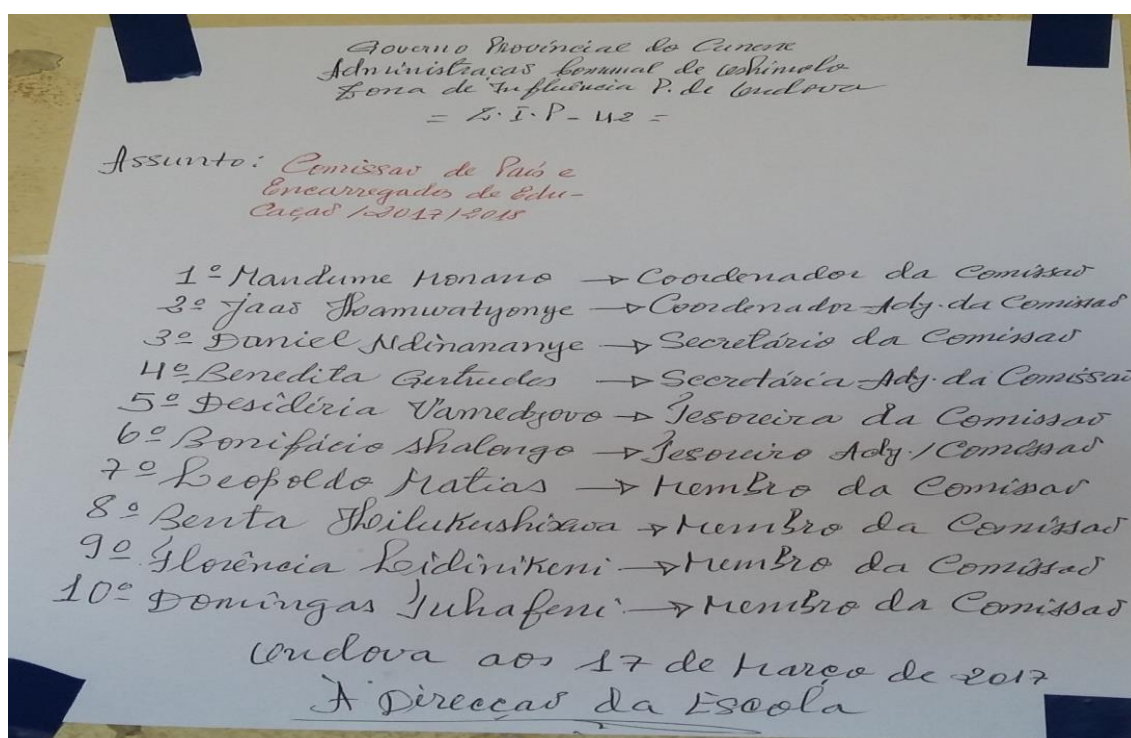 Governo Provincial do Cunene
Administracao Comunal de Oshimolo
Zona de Influência P. de Ondova
= Z.I.P - 42 =
Assunto: Comissao de País e
Encarregados de Edu-
Caçaõ /2017/2018
1º Mandume Monano → Coordenador da Comissaõ
2º Jaaõ → Coordenador Adj. da Comissaõ
3º Daniel Ndinananye → Secretário da Comissaõ
4º Benedita Gertrudes → Secretária Adj. da Comissaõ
5º Desidéria → Tesoreira da Comissaõ
6º Bonifácio Shalongo → Tesoureiro Adj. / Comissaõ
7º Leopoldo Matias → Membro da Comissaõ
8º Benta → Membro da Comissaõ
9º Florência Lidinikeni → Membro da Comissaõ
10º Domingas Tuhafeni → Membro da Comissaõ
Ondova aos 17 de Março de 2017
À Direcçaõ da Escola